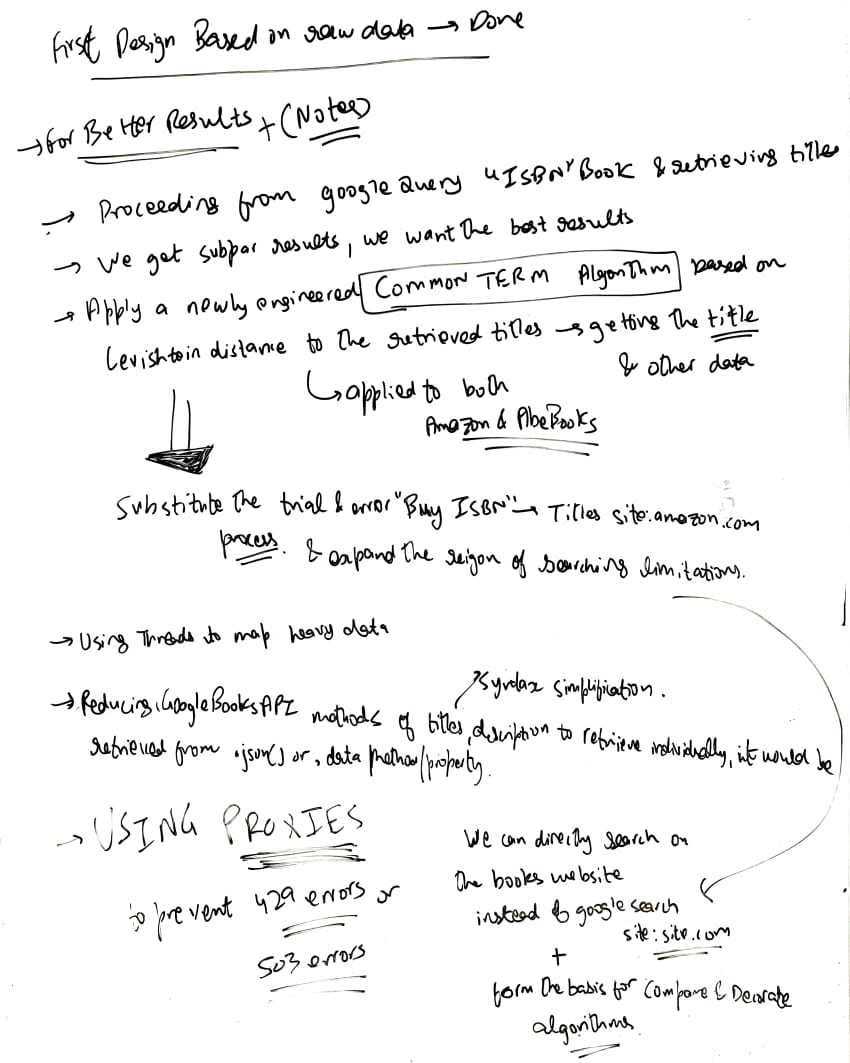 First Design Based on raw data → Done
→ For Better Results + (Notes)
→ Proceeding from google Query "ISBN" Book & retrieving titles
→ We get subpar results, we want the best results
→ Apply a newly engineered Common TERM Algorithm based on
Levishtoin distance to the retrieved titles → getting the title
& other data
↳ applied to both
Amazon & AbeBooks
Substitute the trial & error "Buy ISBN" → Titles site:amazon.com
process. & expand the reigon of searching limitations.
→ Using Threads to map heavy data
→ Reducing GoogleBooksAPI methods of titles, description to retrieve individually, it would be
↗ Syntax simplification.
retrieved from .json() or, data method/property.
→ USING PROXIES
to prevent 429 errors or
503 errors
We can directly search on
the books website
instead of google search
site:site.com
+
form the basis for Compare &
algorithms